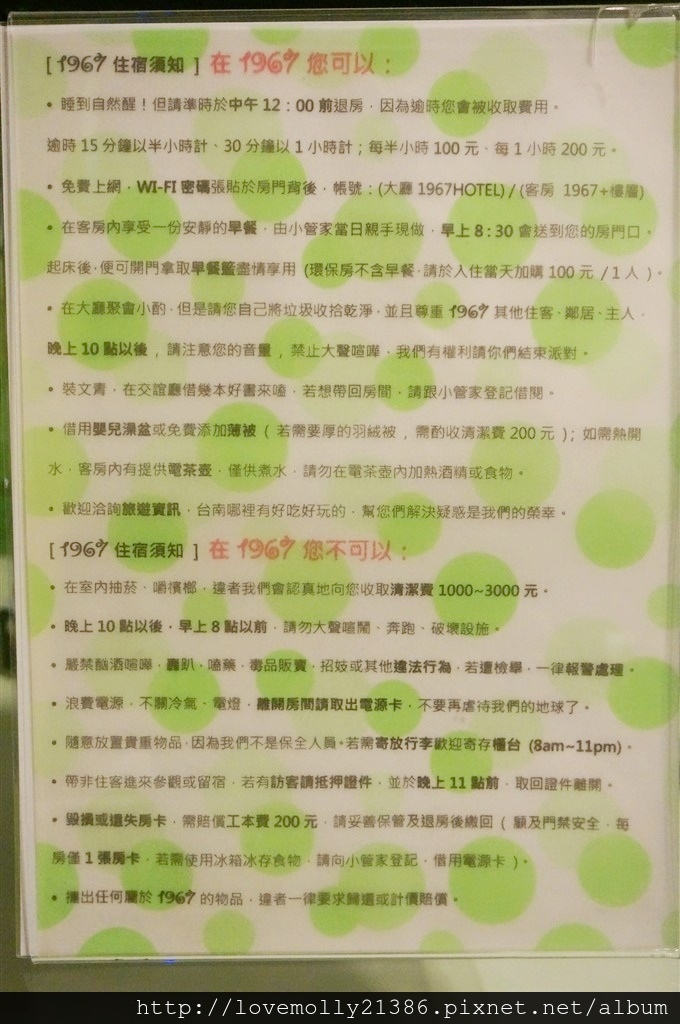 [ 1967 住宿須知 ] 在 1967 您可以：
• 睡到自然醒！但請準時於中午 12：00 前退房，因為逾時您會被收取費用。
逾時 15 分鐘以半小時計、30 分鐘以 1 小時計；每半小時 100 元、每 1 小時 200 元。
• 免費上網，WI-FI 密碼張貼於房門背後，帳號：(大廳 1967HOTEL) / (客房 1967+樓層)
• 在客房內享受一份安靜的早餐，由小管家當日親手現做，早上 8：30 會送到您的房門口。
起床後，便可開門拿取早餐籃盡情享用 (環保房不含早餐，請於入住當天加購 100 元 / 1 人 )。
• 在大廳聚會小酌，但是請您自己將垃圾收拾乾淨，並且尊重 1967 其他住客、鄰居、主人，
晚上 10 點以後 , 請注意您的音量 , 禁止大聲喧嘩，我們有權利請你們結束派對。
• 裝文青，在交誼廳借幾本好書來嗑，若想帶回房間，請跟小管家登記借閱。
• 借用嬰兒澡盆或免費添加薄被 ( 若需要厚的羽絨被 , 需酌收清潔費 200 元 )；如需熱開
水，客房內有提供電茶壺，僅供煮水，請勿在電茶壺內加熱酒精或食物。
• 歡迎洽詢旅遊資訊，台南哪裡有好吃好玩的，幫您們解決疑惑是我們的榮幸。
[ 1967 住宿須知 ] 在 1967 您不可以：
• 在室內抽菸、嚼檳榔，違者我們會認真地向您收取清潔費 1000~3000 元。
• 晚上 10 點以後，早上 8 點以前，請勿大聲喧鬧、奔跑、破壞設施。
• 嚴禁酗酒喧嘩，轟趴、嗑藥、毒品販賣，招妓或其他違法行為，若遭檢舉，一律報警處理。
• 浪費電源，不關冷氣、電燈，離開房間請取出電源卡，不要再虐待我們的地球了。
• 隨意放置貴重物品，因為我們不是保全人員，若需寄放行李歡迎寄存櫃台 (8am~11pm)。
• 帶非住客進來參觀或留宿，若有訪客請抵押證件，並於晚上 11 點前，取回證件離開。
• 毀損或遺失房卡，需賠償工本費 200 元，請妥善保管及退房後繳回 ( 顧及門禁安全，每
房僅 1 張房卡，若需使用冰箱冰存食物，請向小管家登記，借用電源卡 )。
• 攜出任何屬於 1967 的物品，違者一律要求歸還或計價賠償。
http://lovemolly21386.pixnet.net/album